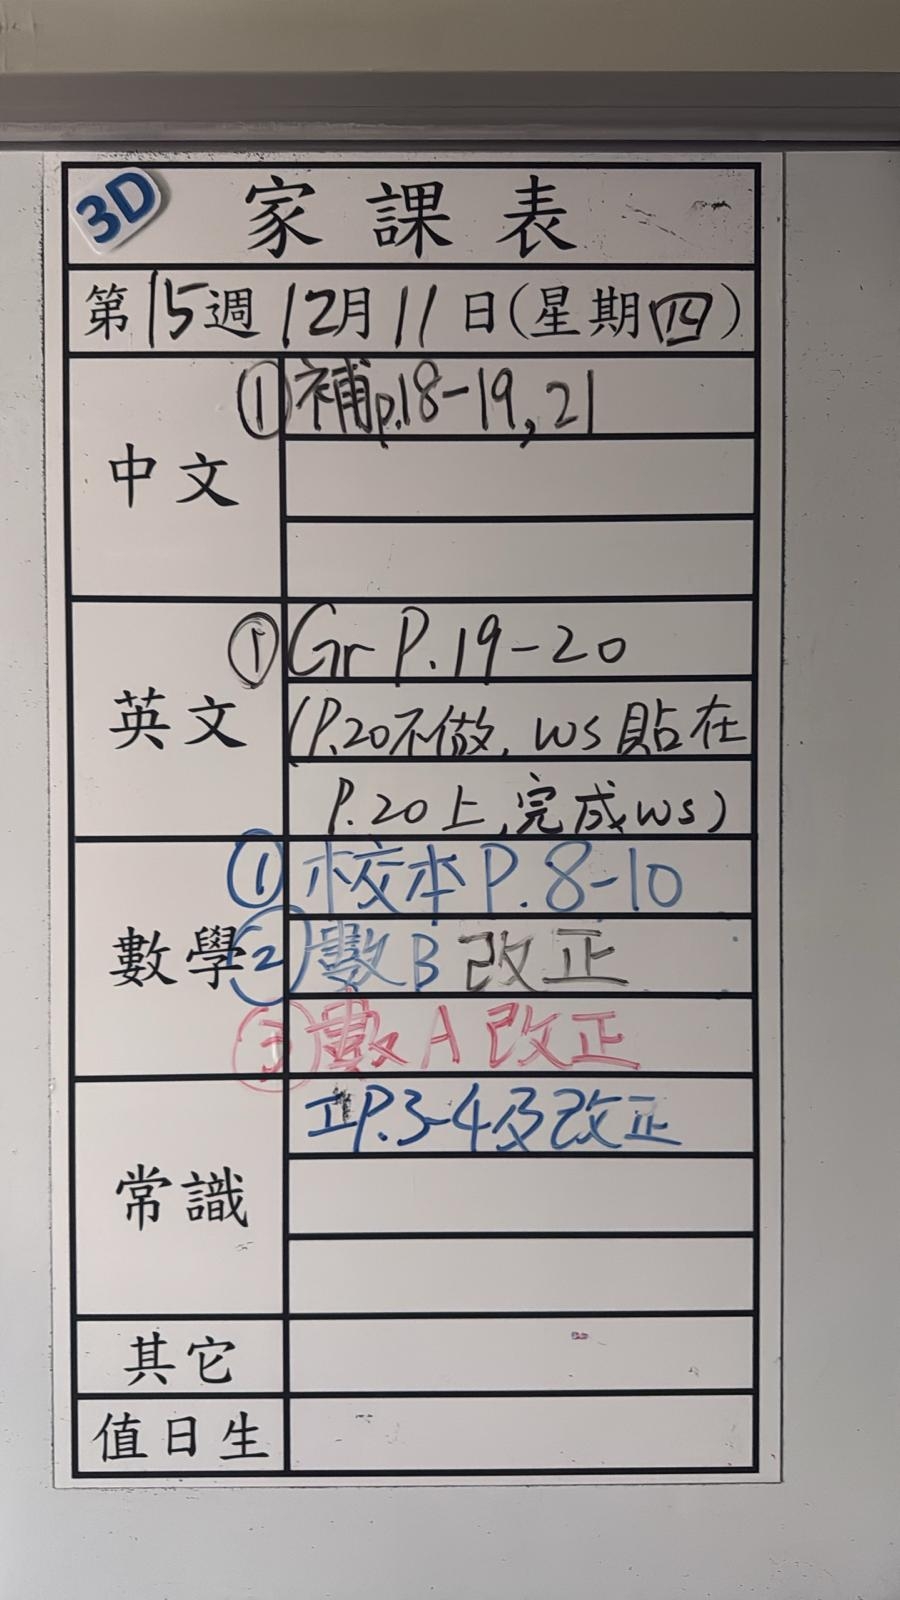 3D
家課表
第15週12月11日(星期四)
中文
①補p.18-19,21
英文
①Gr P.19-20
(P.20不做, WS貼在
P.20上,完成WS)
數學
①校本P.8-10
②數B 改正
③數A 改正
常識
P.3-4及改正
其它
值日生